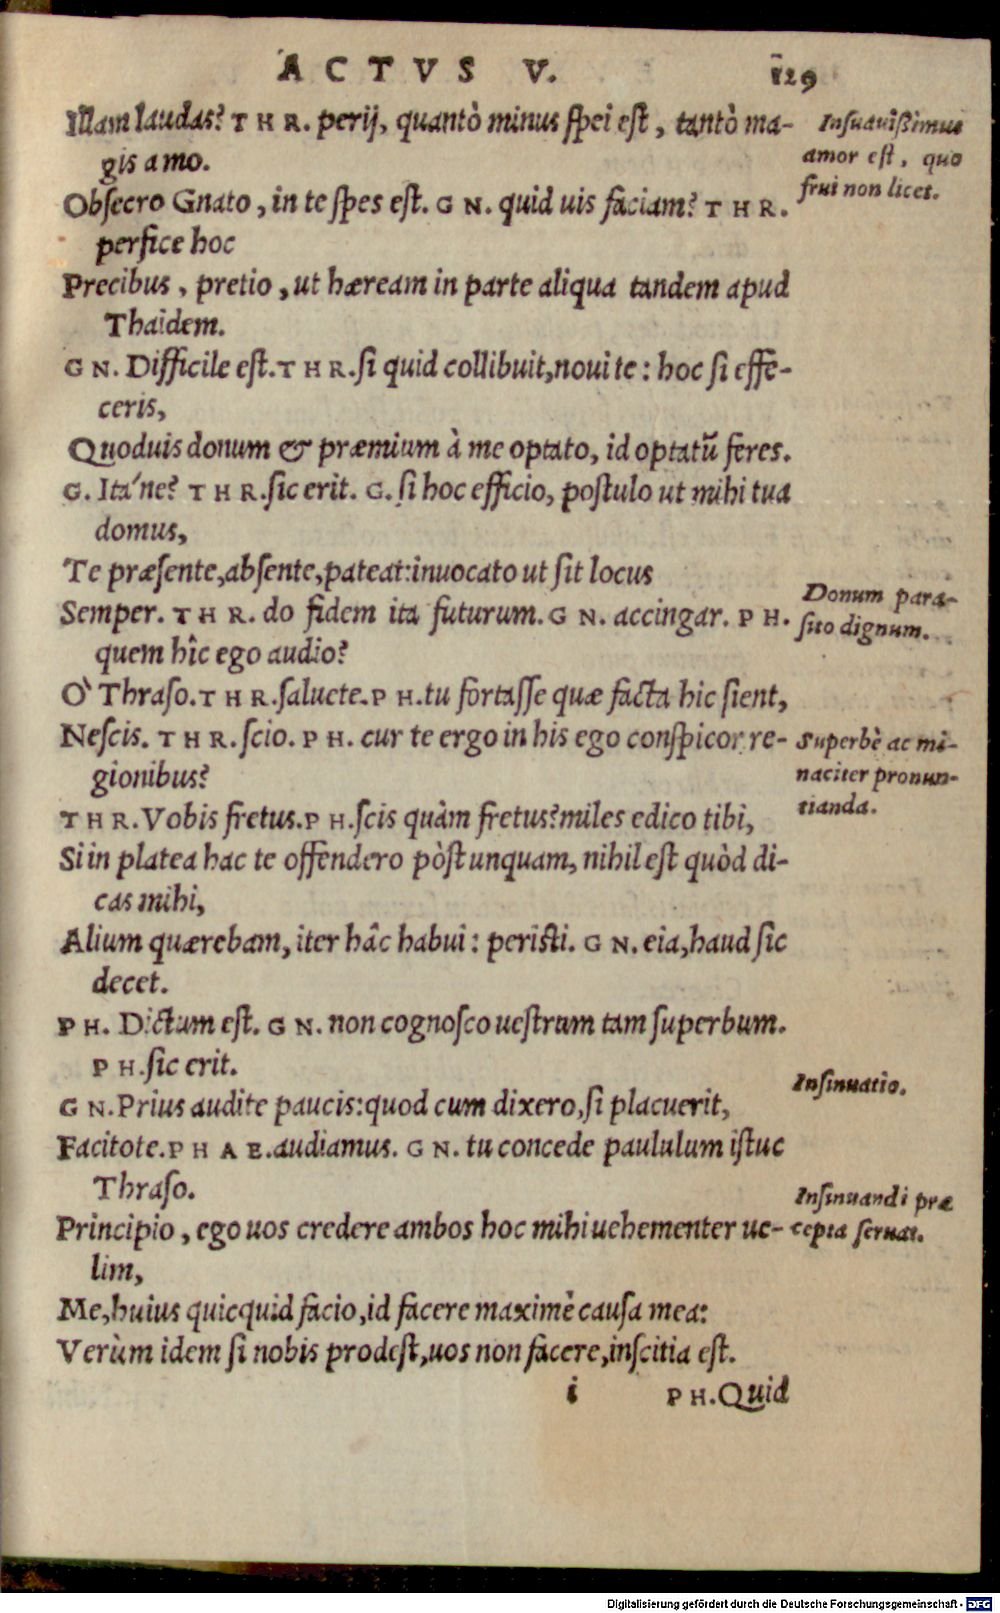 ACTVS V. 129
Illam laudas? THR. perij, quantò minus ſpei eſt, tantò ma-
gis amo.
Obſecro Gnato, in te ſpes eſt. GN. quid uis faciam? THR.
perfice hoc
Precibus, pretio, ut hæream in parte aliqua tandem apud
Thaidem.
GN. Difficile eſt. THR. ſi quid collibuit, noui te: hoc ſi effe-
ceris,
Quoduis donum & præmium à me optato, id optatũ feres.
G. Ita'ne? THR. ſic erit. G. ſi hoc efficio, poſtulo ut mihi tua
domus,
Te præſente, abſente, pateat: inuocato ut ſit locus
Semper. THR. do fidem ita futurum. GN. accingar. PH.
quem hîc ego audio?
O' Thraſo. THR. ſaluete. PH. tu fortaſſe quæ facta hic ſient,
Neſcis. THR. ſcio. PH. cur te ergo in his ego conſpicor re-
gionibus?
THR. Vobis fretus. PH. ſcis quàm fretus? miles edico tibi,
Si in platea hac te offendero pòſt unquam, nihil eſt quòd di-
cas mihi,
Alium quærebam, iter hâc habui: periſti. GN. eia, haud ſic
decet.
PH. Dictum eſt. GN. non cognoſco ueſtrum tam ſuperbum.
PH. ſic erit.
GN. Prius audite paucis: quod cum dixero, ſi placuerit,
Facitote. PHAE. audiamus. GN. tu concede paululum iſtuc
Thraſo.
Principio, ego uos credere ambos hoc mihi uehementer ue-
lim,
Me, huius quicquid facio, id facere maximè cauſa mea:
Verùm idem ſi nobis prodeſt, uos non facere, inſcitia eſt.
i PH. Quid
Inſuauiſsimus
amor eſt, quo
frui non licet.
Donum para-
ſito dignum.
Superbè ac mi-
naciter pronun-
tianda.
Inſinuatio.
Inſinuandi præ
cepta ſeruat.
Digitalisierung gefördert durch die Deutsche Forschungsgemeinschaft - DFG